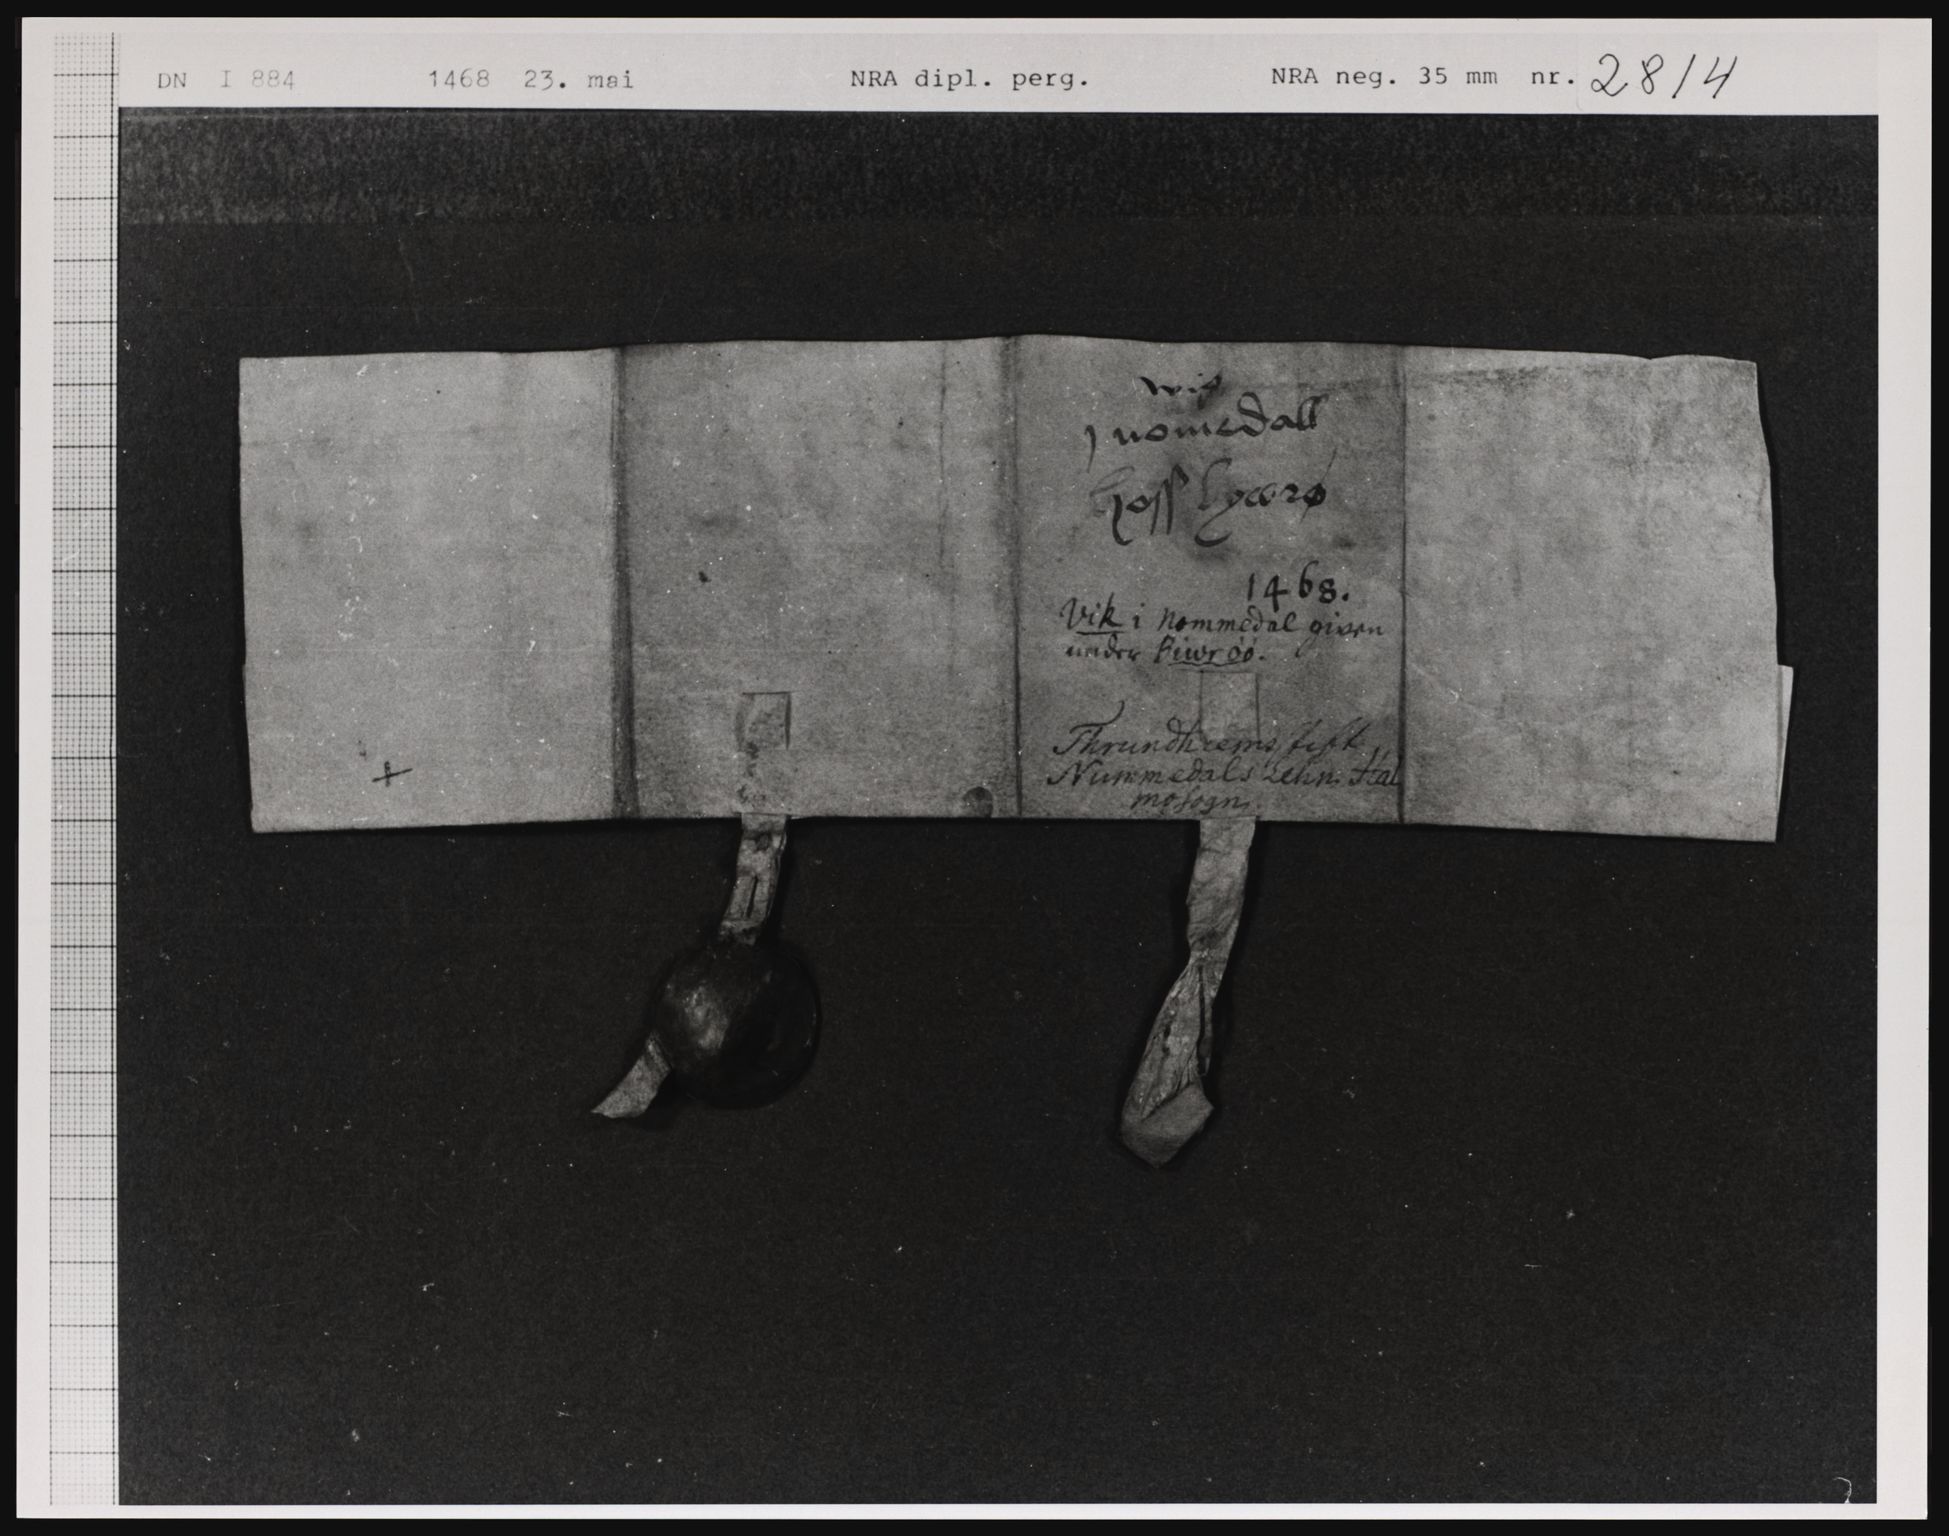 DN I 884 1468 23. mai NRA dipl. perg. NRA neg. 35 mm nr. 2814
wiik
j nomedall
hoss bywrø
1468.
Vik i Nommedal given
under Biuröö.
Thrundhiems stift
Nummedals Lehn. Hal
mosogn.